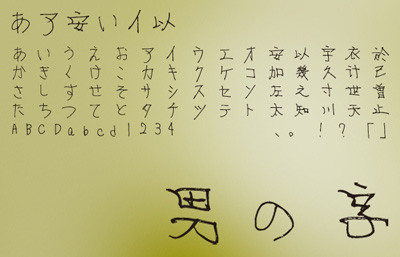 あア安いイ以
あいうえおアイウエオ安以宇衣於
かきくけこカキクケコ加幾久計己
さしすせそサシスセソ左之寸世曽
たちつてとタチツテト太知川天止
ABCDabcd1234 、。!?「」
男の字